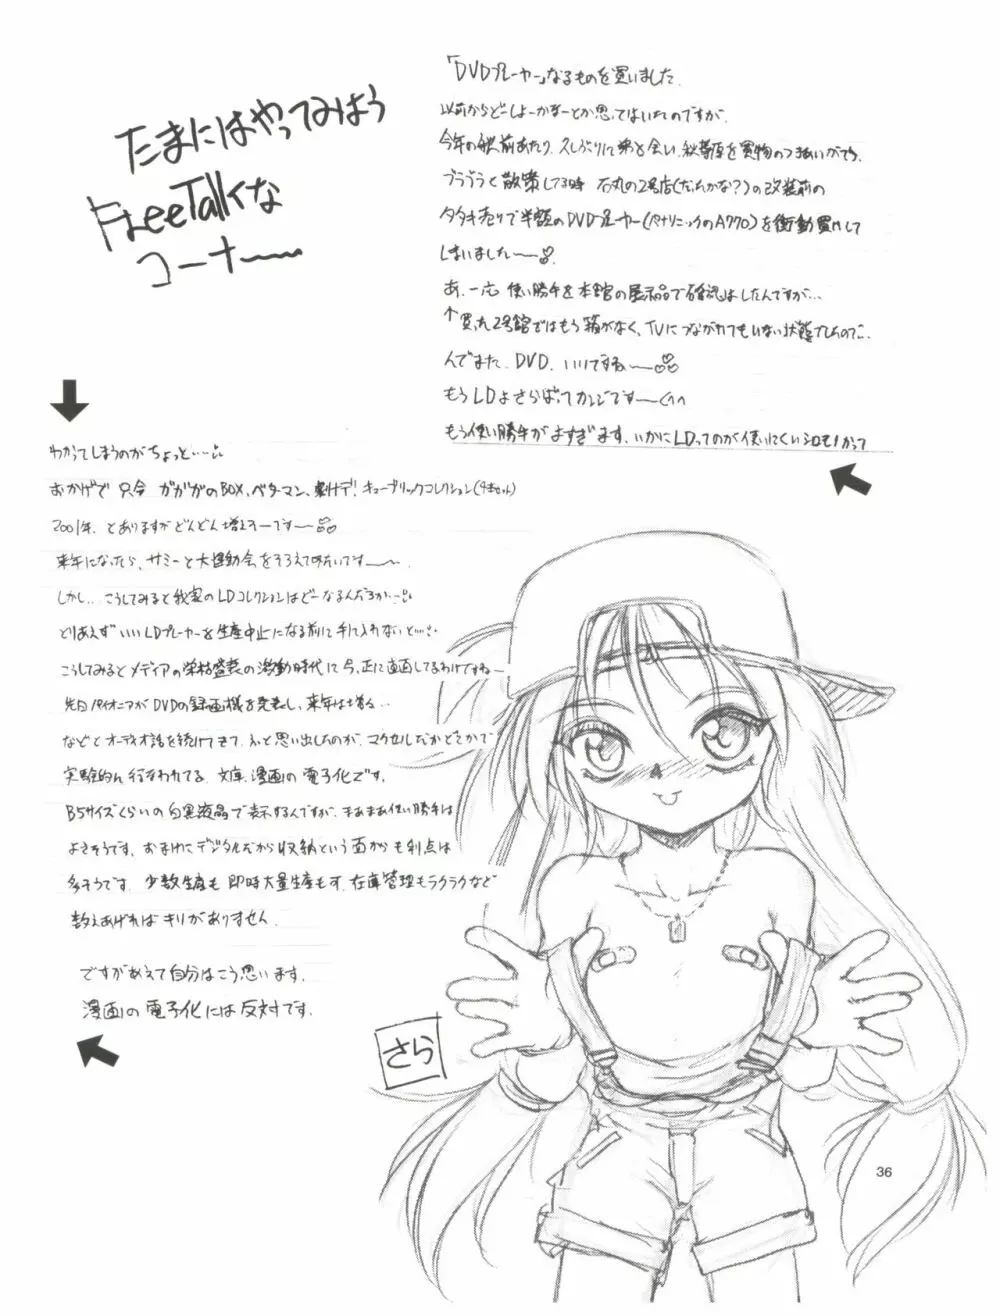 たまにはやってみはう
FreeTalkな
コーナー〜〜
「DVDプレーヤー」なるものを買いました.
以前からどーしよーかなーとか思ってはいたのですが.
今年の秋前あたり、久しぶりに弟と会い、秋葉原を買物のつきあいがてら.
ブラブラと散策してる時 石丸の2号店(だったかな?)の改装前の
タタキ売りで半額のDVDプレーヤー(パナソニックのA770)を衝動買いして
しまいました〜〜
あ、一応 使い勝手を本館の展示品で確認はしたんですが…
↑買った2号館ではもう箱がなく、TVにつながれてもいない状態でしたので…
んでまた、DVD、いいですね〜〜
もうLDよさらばってカンジです〜〜(^^
もう使い勝手がよすぎます、いかにLDってのが使いにくいシロモノかって
わかってしまうのがちょっと…
おかげで 只今 ガガガのBOX、ベターマン、劇ナデ! キューブリックコレクション(4本セット)
2001年、とありますがどんどん増えそーです〜〜
来年になったら、サミーと大運動会をそろえてみたいです〜〜.
しかし… こうしてみると我家のLDコレクションはどーなるんだろか…
とりあえずいいLDプレーヤーを生産中止になる前に手に入れないと…
こうしてみるとメディアの栄枯盛衰の激動時代に今、正に直面してるわけですね〜
先日パイオニアがDVDの録画機を発表し、来年は増え…
などとオーディオ話を続けてきて、ふと思い出したのが、マクセルだかどこかで
実験的に行なわれてる、文庫、漫画の電子化です.
B5サイズくらいの白黒液晶で表示するんですが、まあまあ使い勝手は
よさそうです、おまけにデジタルだから収納という面からも利点は
多そうです、少数生産も即時大量生産もす、在庫管理もラクラクなど
数えあげればキリがありません.
ですがあえて自分はこう思います.
漫画の電子化には反対です.
さら
36